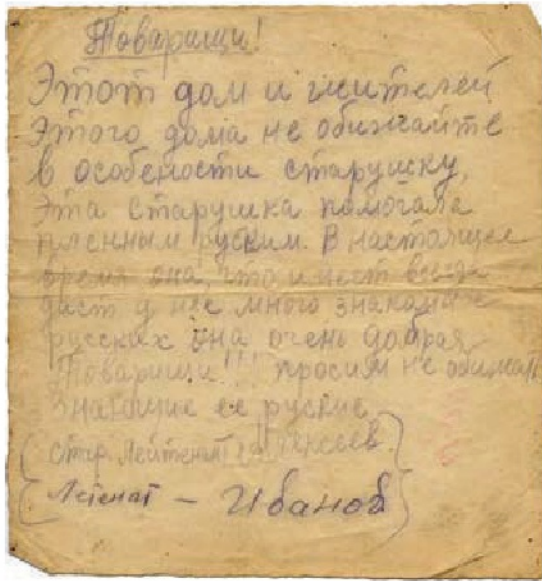 Товарищи!
Этот дом и жителей
этого дома не обижайте
в особености старушку,
эта старушка помогала
пленным руским. В настоящее
время она, что имеет всегда
даст у нее много знакомых
русских она очень добрая
Товарищи!!! просим не обижать
Знающие ее руские
Стар. Лейтенант
Летенат – Иванов